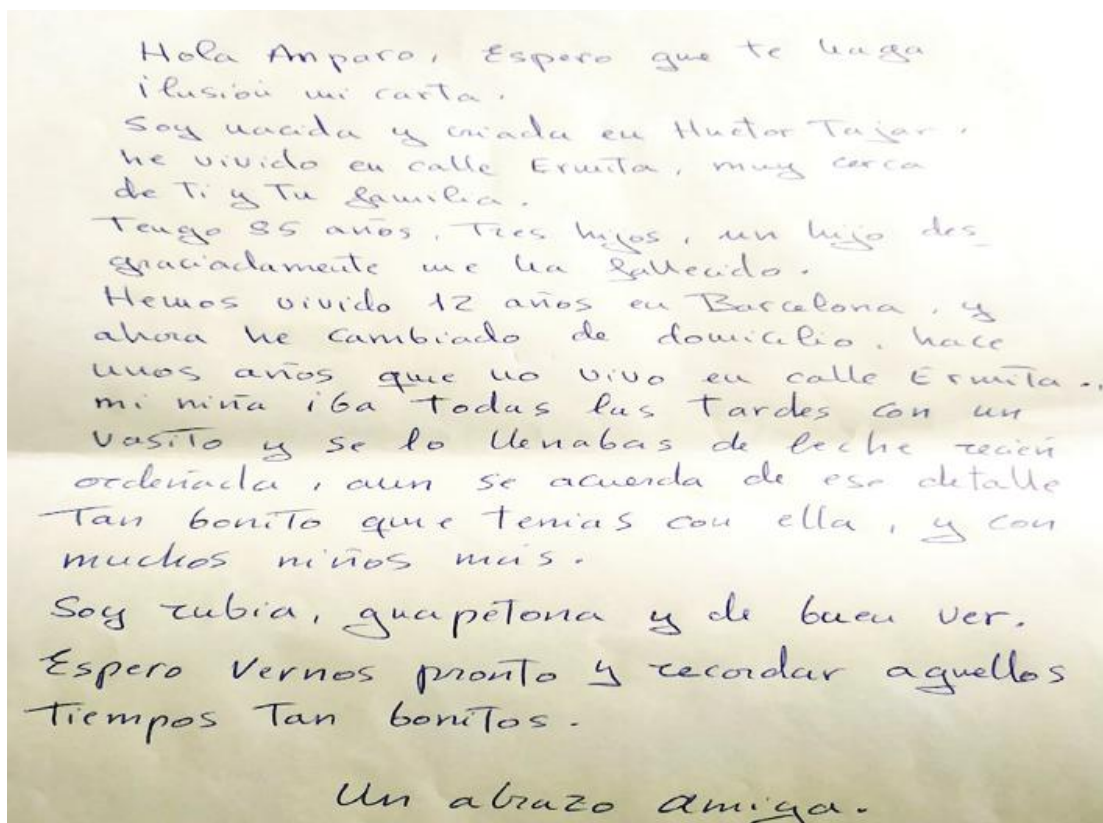 Hola Amparo, Espero que te haga
ilusión mi carta.
Soy nacida y criada en Huetor Tajar,
he vivido en calle Ermita, muy cerca
de Ti y Tu familia.
Tengo 85 años, Tres hijos, un hijo des_
graciadamente me ha fallecido.
Hemos vivido 12 años en Barcelona, y
ahora he cambiado de domicilio, hace
unos años que no vivo en calle Ermita..
mi niña iba Todas las Tardes con un
vasito y se lo llenabas de leche recién
ordeñada, aun se acuerda de ese detalle
Tan bonito que tenias con ella, y con
muchos niños más.
Soy rubia, guapetona y de buen ver.
Espero Vernos pronto y recordar aquellos
Tiempos Tan boniTos.
Un abrazo amiga.